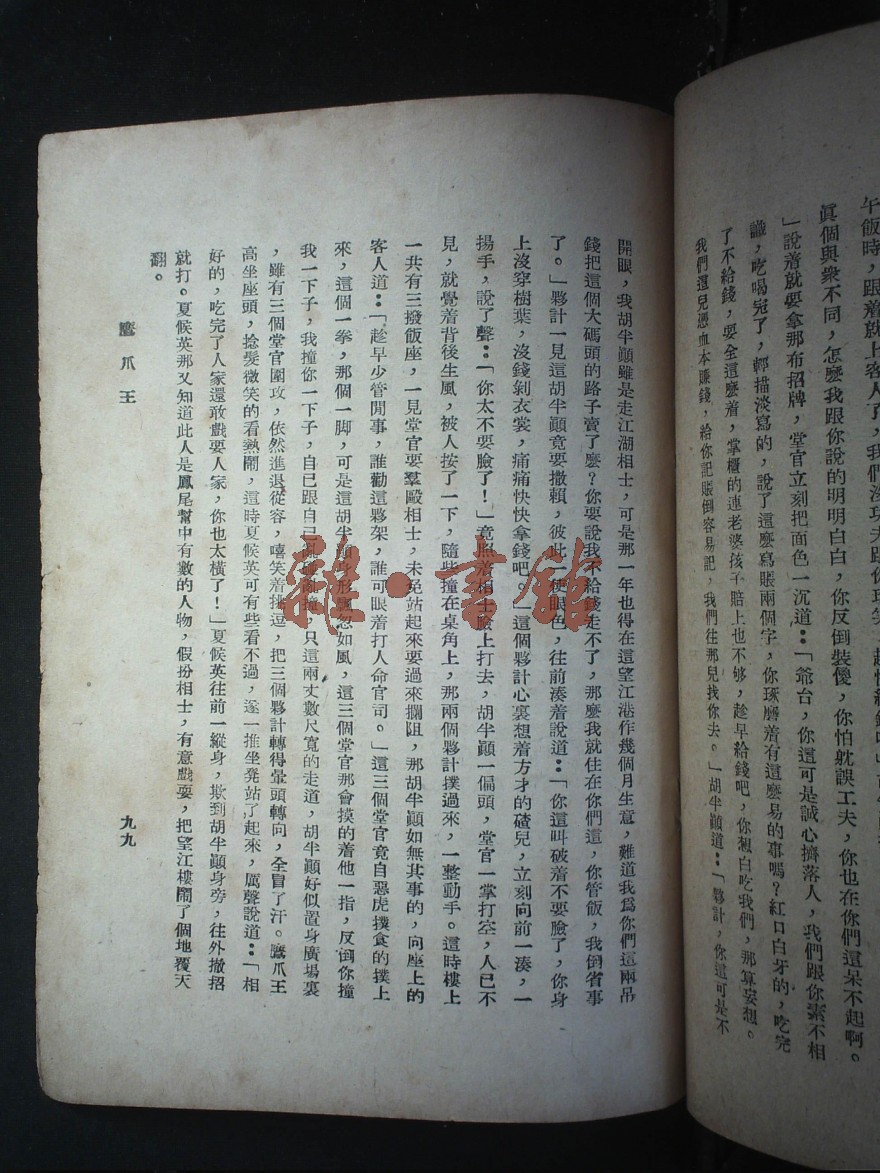 午飯時，跟着就上客人了，我們沒功夫跟你
眞個與衆不同，怎麽我跟你說的明明白白，你反倒裝傻，你怕躭誤工夫，你也在你們這呆不起啊。
」說着就要拿那布招牌，堂官立刻把面色一沉道：「爺台，你這可是誠心擠落人，我們跟你素不相
識，吃喝完了，輕描淡寫的，說了這麽寫賬兩個字，你琢磨着有這麽易的事嗎？紅口白牙的，吃完
了不給錢，要全這麽着，掌櫃的連老婆孩子賠上也不够，趁早給錢吧，你想白吃我們，那算妄想。
我們這兒憑血本賺錢，給你記賬倒容易記，我們往那兒找你去。」胡半顚道：「夥計，你這可是不
開眼，我胡半顚雖是走江湖相士，可是那一年也得在這望江港作幾個月生意，難道我爲你們這兩吊
錢把這個大碼頭的路子賣了麽？你要說我不給錢走不了，那麽我就住在你們這，你管飯，我倒省事
了。」夥計一見這胡半顚竟要撒賴，彼此一使眼色，往前湊着說道：「你這叫破着不要臉了，你身
上沒穿樹葉，沒錢剝衣裳，痛痛快快拿錢吧。」這個夥計心裏想着方才的碴兒，立刻向前一湊，一
揚手，說了聲：「你太不要臉了！」竟照着相士臉上打去，胡半顚一偏頭，堂官一掌打空，人已不
見，就覺着背後生風，被人按了一下，隨些撞在桌角上，那兩個夥計撲過來，一整動手。這時樓上
一共有三撥飯座，一見堂官要羣毆相士，未免站起來要過來攔阻，那胡半顚如無其事的，向座上的
客人道：「趁早少管閒事，誰勸這夥架，誰可眼着打人命官司。」這三個堂官竟自惡虎撲食的撲上
來，這個一拳，那個一脚，可是這胡半顚身形飄忽如風，這三個堂官那會摸的着他一指，反倒你撞
我一下子，我撞你一下子，自已跟自己亂碰亂撞，只這兩丈數尺寬的走道，胡半顚好似置身廣場裏
，雖有三個堂官圍攻，依然進退從容，嘻笑着挑逗，把三個夥計轉得暈頭轉向，全冒了汗。鷹爪王
高坐座頭，捻髮微笑的看熱鬧，這時夏候英可有些看不過，遂一推坐凳站了起來，厲聲說道：「相
好的，吃完了人家還敢戲耍人家，你也太橫了！」夏候英往前一縱身，欺到胡半顚身旁，往外撤招
就打。夏候英那又知道此人是鳳尾幫中有數的人物，假扮相士，有意戲耍，把望江樓鬧了個地覆天
翻。
鷹爪王
九九
雜·書館